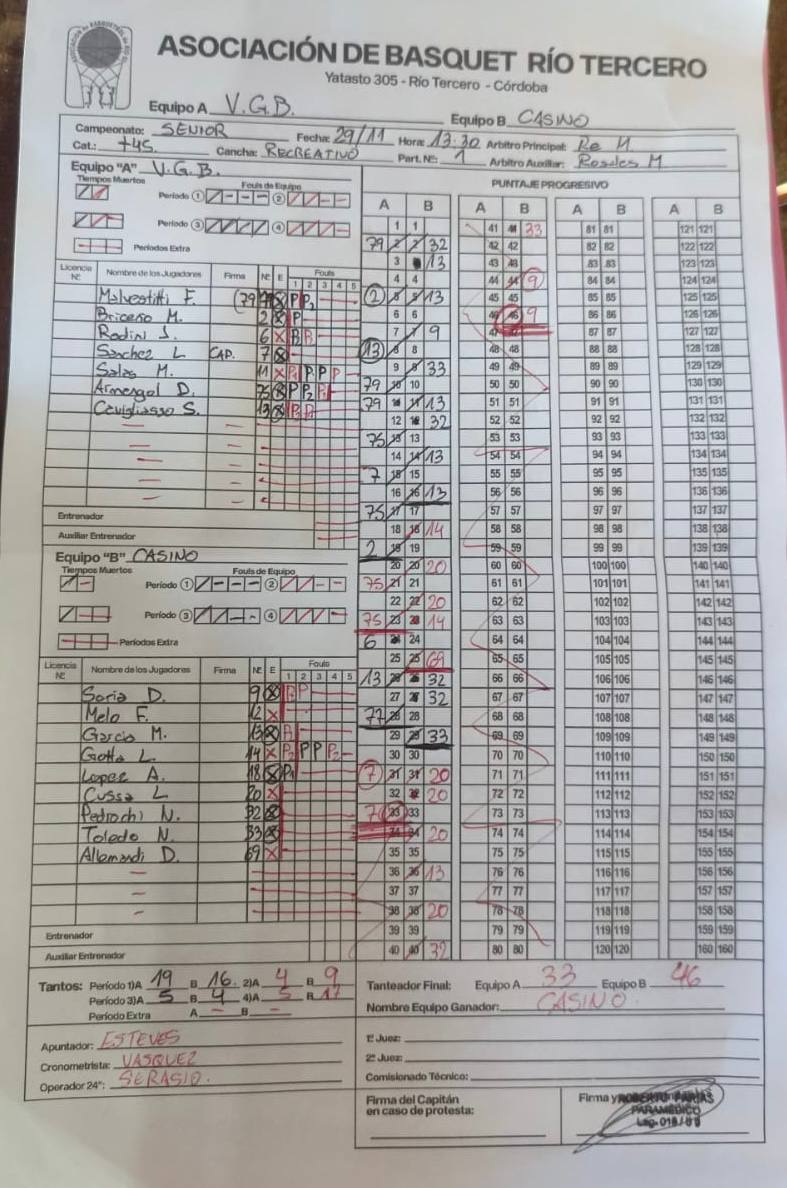 ASOCIACIÓN DE BASQUET RÍO TERCERO
Yatasto 305 - Río Tercero - Córdoba
Equipo A V.G.B. Equipo B CASINO
Campeonato: SENIOR Fecha: 29/11 Hora: 13:30 Arbitro Principal: Re M.
Cat.: +45 Cancha: RECREATIVO Part. Nº: 1 Arbitro Auxiliar: Rosales M.
Equipo "A" V.G.B.
Tiempos Muertos Fouls de Equipo
Período 1 2
Período 3 4
Períodos Extra
Licencia Nº Nombre de los Jugadores Firma Nº E Fouls 1 2 3 4 5
Malvestitti F. (79
Briceño M. 2 X P
Rodin J. 6 X
Sanchez L CAP. 7 X
Salas M. 11 X P P P P
Armengol D. 75 X P P2
Cavigliasso S. 13 X
Entrenador
Auxiliar Entrenador
Equipo "B" CASINO
Tiempos Muertos Fouls de Equipo
Período 1 2
Período 3 4
Períodos Extra
Licencia Nº Nombre de los Jugadores Firma Nº E Fouls 1 2 3 4 5
Soria D. 9 X P
Melo F. 12 X
Garcia M. 13 X
Gotta L. 14 X P2 P P P2
Lopez A. 18 X P1
Cussa L 20 X
Pedrochi N. 32 X
Toledo N. 33 X
Allemandi D. 69 X
Entrenador
Auxiliar Entrenador
PUNTAJE PROGRESIVO
A B A B A B A B
1 1 41 33 81 81 121 121
79 32 42 42 82 82 122 122
3 13 43 43 83 83 123 123
4 4 44 9 84 84 124 124
2 5 5 13 45 45 85 85 125 125
6 6 46 9 86 86 126 126
7 9 87 87 127 127
13 8 48 48 88 88 128 128
9 33 49 49 89 89 129 129
79 10 50 50 90 90 130 130
79 13 51 51 91 91 131 131
12 32 52 52 92 92 132 132
75 13 53 53 93 93 133 133
14 14 13 54 54 94 94 134 134
7 15 15 55 55 95 95 135 135
16 16 13 56 56 96 96 136 136
75 17 17 57 57 97 97 137 137
18 14 58 58 98 98 138 138
2 19 59 59 99 99 139 139
20 20 20 60 60 100 100 140 140
75 21 21 61 61 101 101 141 141
22 22 20 62 62 102 102 142 142
75 23 14 63 63 103 103 143 143
6 24 64 64 104 104 144 144
25 25 69 65 65 105 105 145 145
13 32 66 66 106 106 146 146
27 32 67 67 107 107 147 147
77 28 28 68 68 108 108 148 148
29 33 69 69 109 109 149 149
30 30 70 70 110 110 150 150
7 31 31 20 71 71 111 111 151 151
32 20 72 72 112 112 152 152
33 33 73 73 113 113 153 153
34 20 74 74 114 114 154 154
35 35 75 75 115 115 155 155
36 36 13 76 76 116 116 156 156
37 37 77 77 117 117 157 157
38 38 20 78 78 118 118 158 158
39 39 79 79 119 119 159 159
40 40 32 80 80 120 120 160 160
Tantos: Período 1)A 19 B 16. 2)A 4 B 9
Período 3)A 5 B 4 4)A 5 B 17
Período Extra A - B -
Tanteador Final: Equipo A 33 Equipo B 46
Nombre Equipo Ganador: CASINO.
Apuntador: ESTEVES
Cronometrista: VASQUEZ
Operador 24": SERASIO.
1º Juez:
2º Juez:
Comisionado Técnico:
Firma del Capitán
en caso de protesta:
Firma y
ROBERTO FARIAS
PARAMEDICO